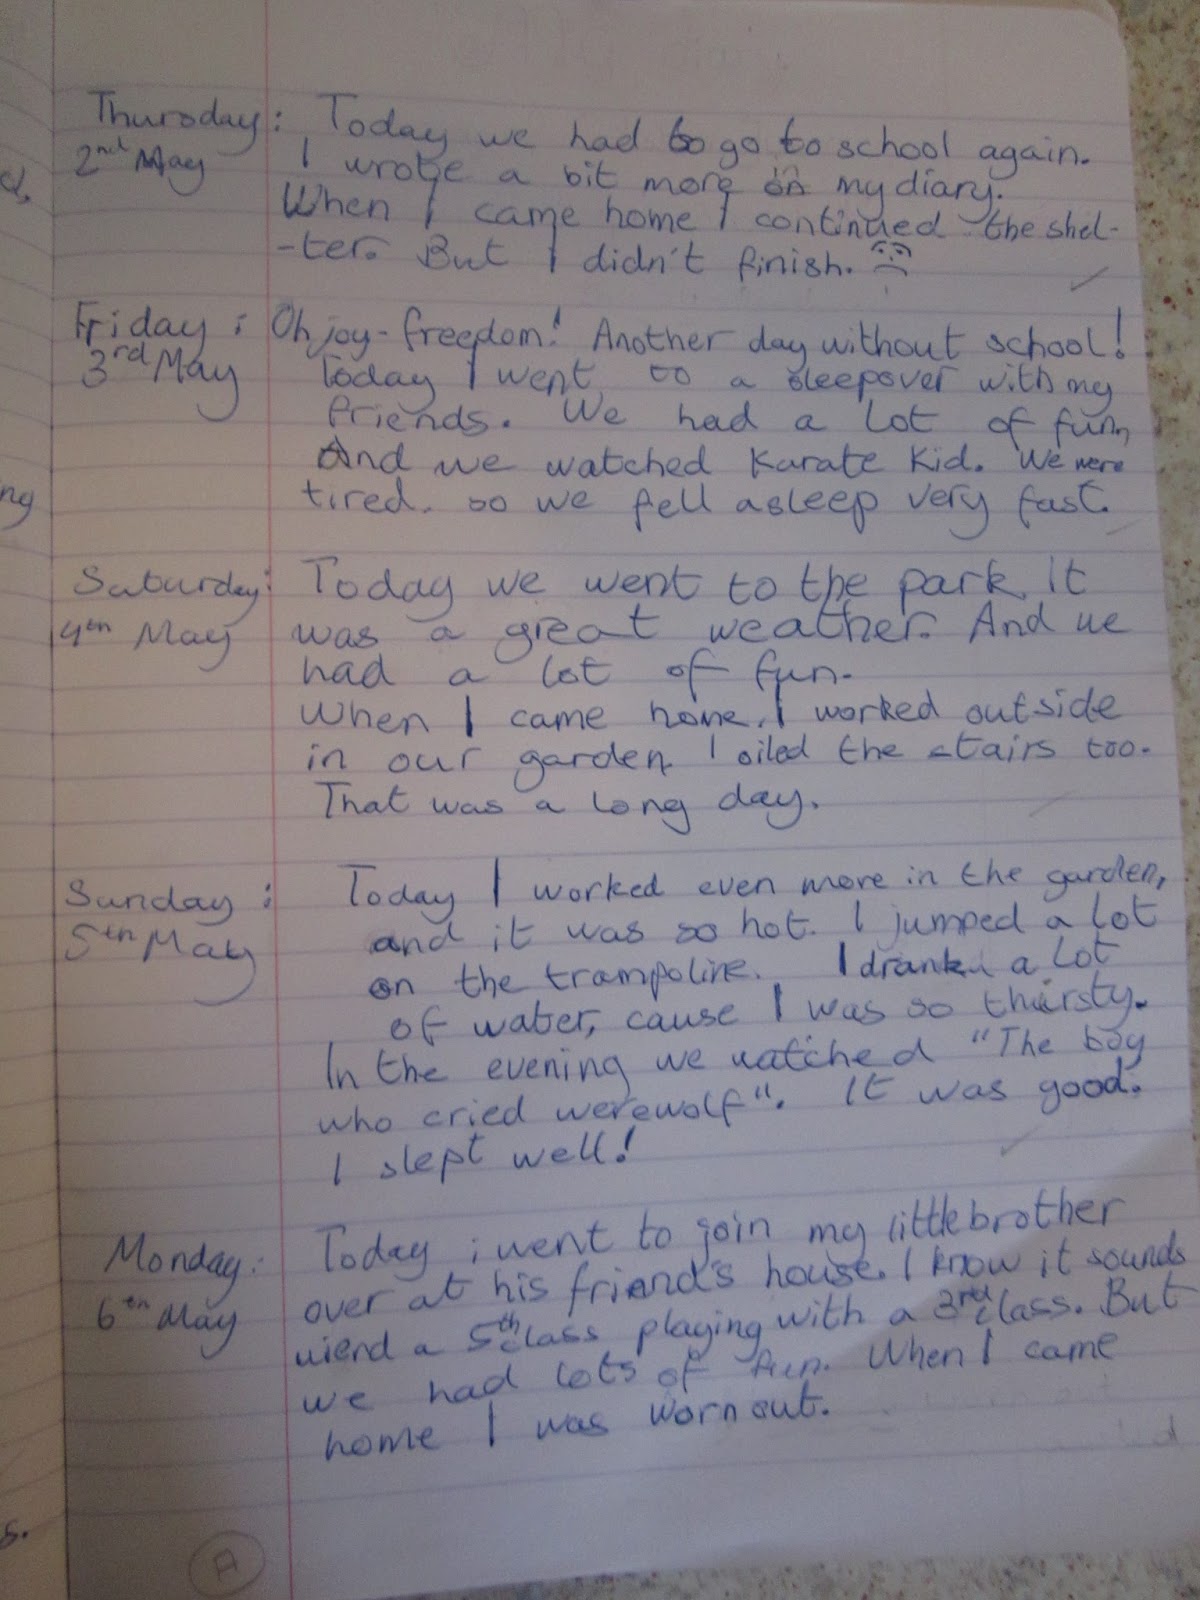 Thursday: Today we had to go to school again.
2nd May I wrote a bit more in my diary.
When I came home I continued the shel-
-ter. But I didn't finish.
Friday: Oh joy-freedom! Another day without school!
3rd May Today I went to a sleepover with my
friends. We had a lot of fun,
And we watched Karate Kid. We were
tired. so we fell asleep very fast.
Saturday: Today we went to the park. It
4th May was a great weather. And we
had a lot of fun.
When I came home, I worked outside
in our garden. I oiled the stairs too.
That was a long day.
Sunday: Today I worked even more in the garden,
5th May and it was so hot. I jumped a lot
on the trampoline. I drank a lot
of water, cause I was so thirsty.
In the evening we watched "The boy
who cried werewolf". It was good.
I slept well!
Monday: Today i went to join my little brother
6th May over at his friend's house. I know it sounds
wierd a 5th class playing with a 3rd class. But
we had lots of fun. When I came
home I was worn out.
d.
ng
s.
A